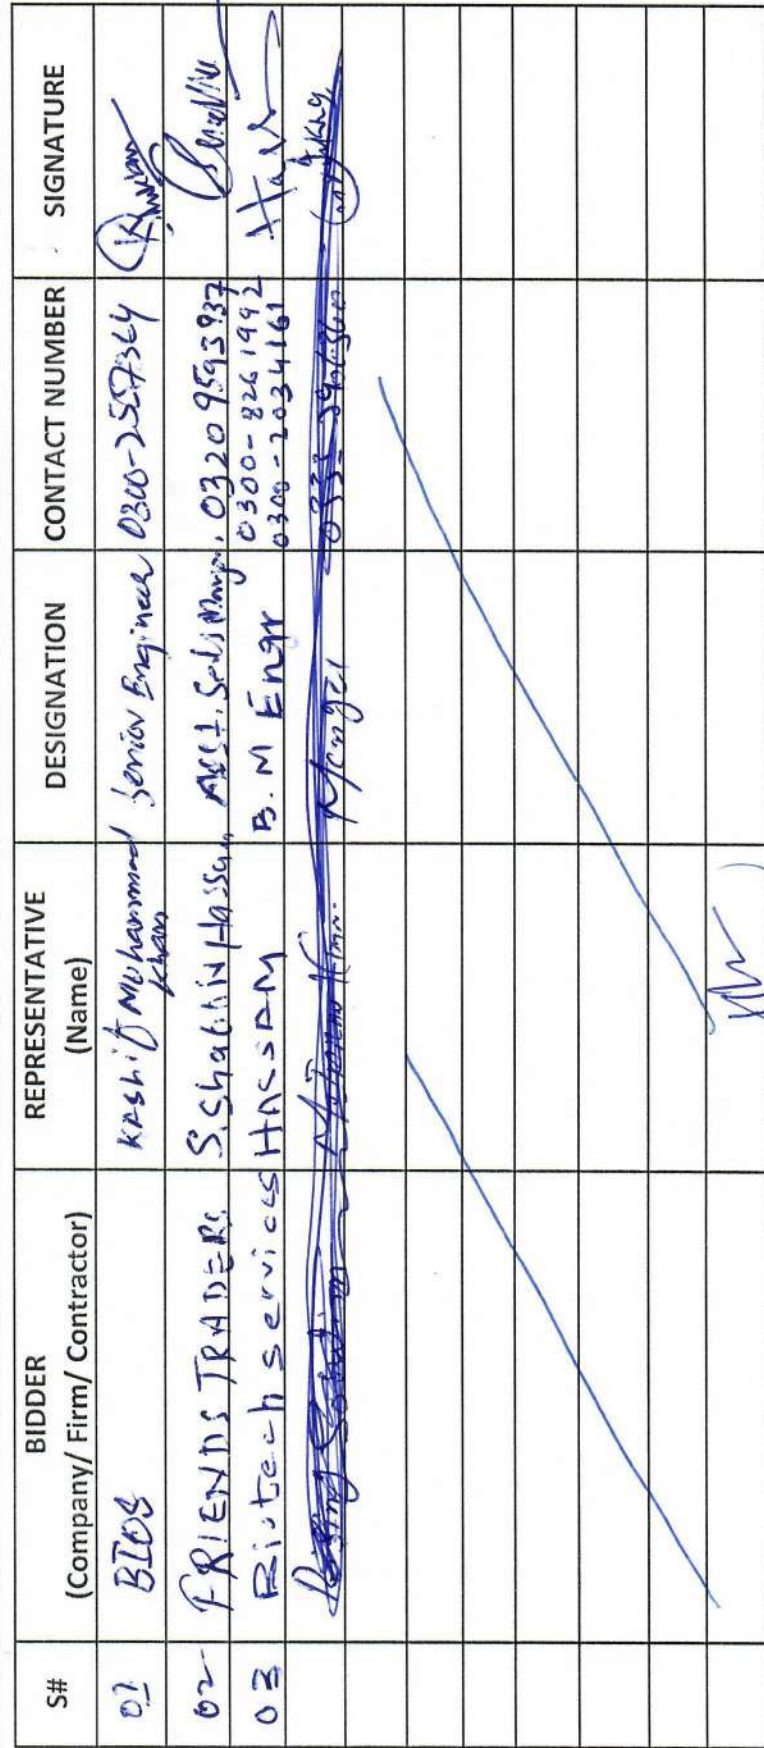 S# BIDDER (Company/ Firm/ Contractor) REPRESENTATIVE (Name) DESIGNATION CONTACT NUMBER SIGNATURE
01 BIOS Kashif Muhammad Khan Senior Engineer 0300-2557364
02 FRIENDS TRADERS S. Shabih Hassan Asst. Sales Manager 0320 9593937
03 Riotech services HASSAM B.M Engr 0300-8261992
0300-2034161